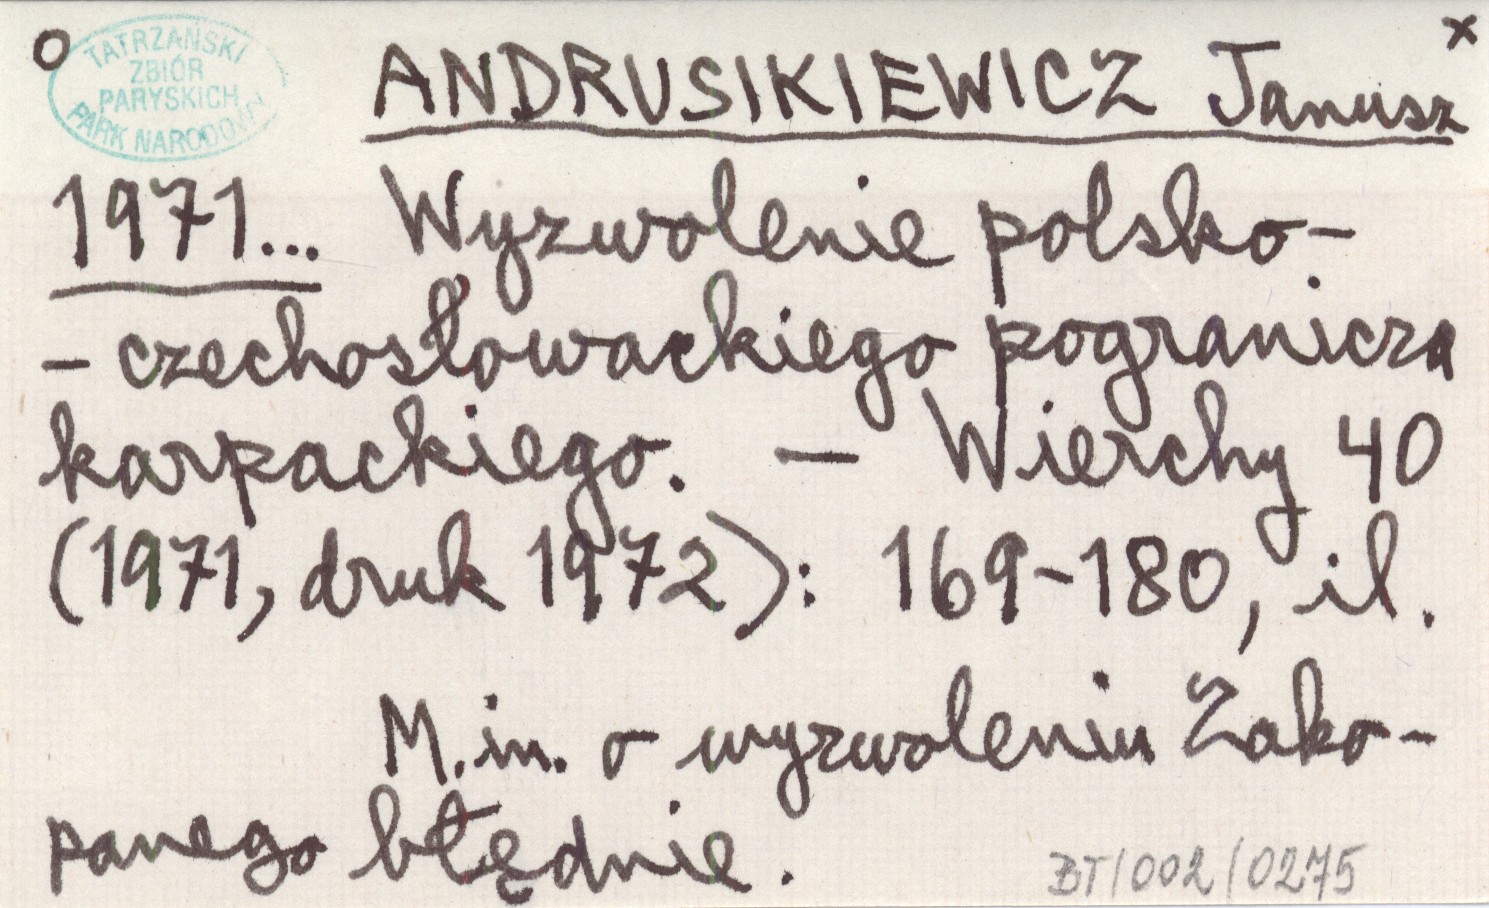 o
TATRZAŃSKI
ZBIÓR
PARYSKICH
PARK NARODOWY
x
ANDRUSIKIEWICZ Janusz
1971... Wyzwolenie polsko-
- czechosłowackiego pogranicza
karpackiego. — Wierchy 40
(1971, druk 1972): 169-180, il.
M.in. o wyzwoleniu Zako-
panego błędnie.
BT/002/0275